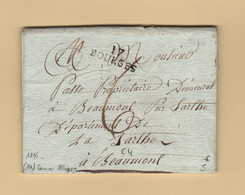 17
BOURGES
Monsieur
Patte Propriétaire Demeurant
à Beaumont par Sarthe
Département De
La Sarthe
à Beaumont
6